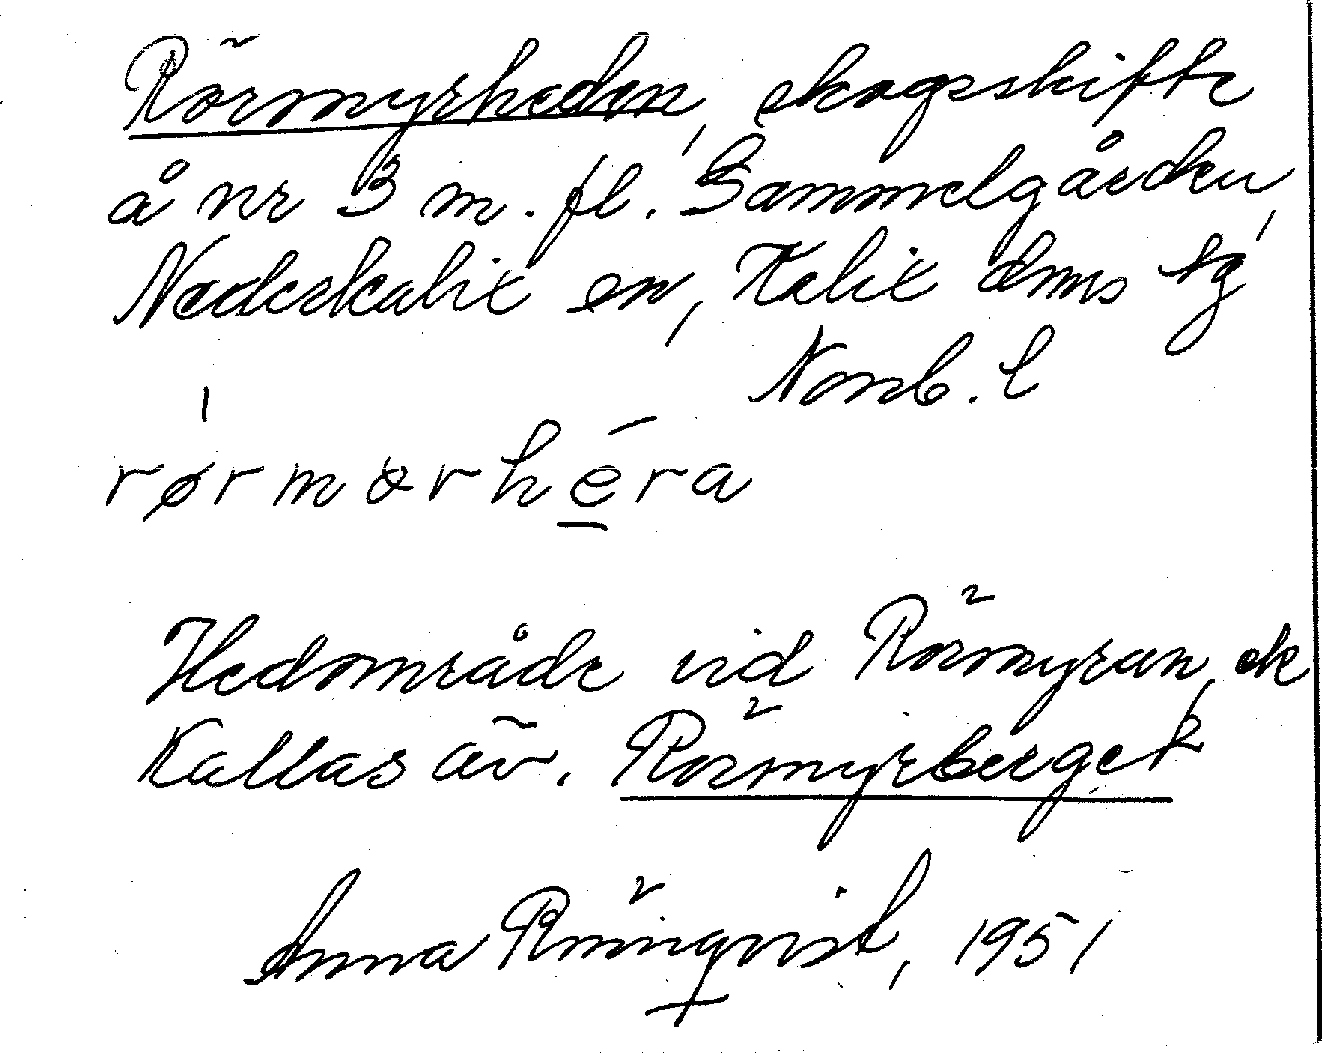 Rörmyrheden, skogsskifte
å nr 3 m. fl. Gammelgården,
Nederkalix sn, Kalix dms tg
Norrb. l
rørmørhéra
Hedområde vid Rörmyran, ck
Kallas äv. Rörmyrberget
Anna Rönnqvist, 1951